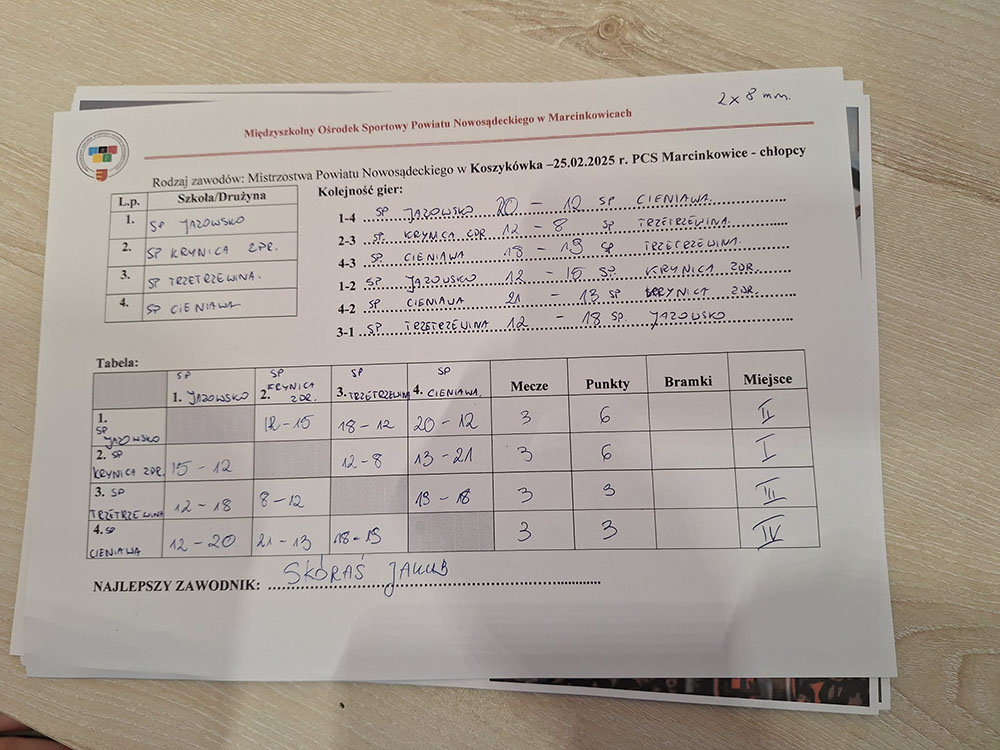 2 x 8 min.
Międzyszkolny Ośrodek Sportowy Powiatu Nowosądeckiego w Marcinkowicach
Rodzaj zawodów: Mistrzostwa Powiatu Nowosądeckiego w Koszykówka –25.02.2025 r. PCS Marcinkowice - chłopcy
L.p. Szkoła/Drużyna
1. SP JAZOWSKO
2. SP KRYNICA ZDR.
3. SP TRZETRZEWINA.
4. SP CIENIAWA
Kolejność gier:
1-4 SP JAZOWSKO 20 – 12 SP CIENIAWA
2-3 SP KRYNICA ZDR 12 – 8 SP TRZETRZEWINA.
4-3 SP CIENIAWA 18 – 19 SP TRZETRZEWINA.
1-2 SP JAZOWSKO 12 – 15 SP KRYNICA ZDR.
4-2 SP CIENIAWA 21 – 13 SP KRYNICA ZDR.
3-1 SP TRZETRZEWINA 12 – 18 SP. JAZOWSKO
Tabela:
1. SP JAZOWSKO 2. SP KRYNICA ZDR. 3. SP TRZETRZEWINA 4. SP CIENIAWA. Mecze Punkty Bramki Miejsce
1. SP JAZOWSKO 12 – 15 18 – 12 20 – 12 3 6 II
2. SP KRYNICA ZDR. 15 – 12 12 – 8 13 – 21 3 6 I
3. SP TRZETRZEWINA 12 – 18 8 – 12 19 – 18 3 3 III
4. SP CIENIAWA 12 – 20 21 – 13 18 – 19 3 3 IV
NAJLEPSZY ZAWODNIK: SKÓRAŚ JAKUB